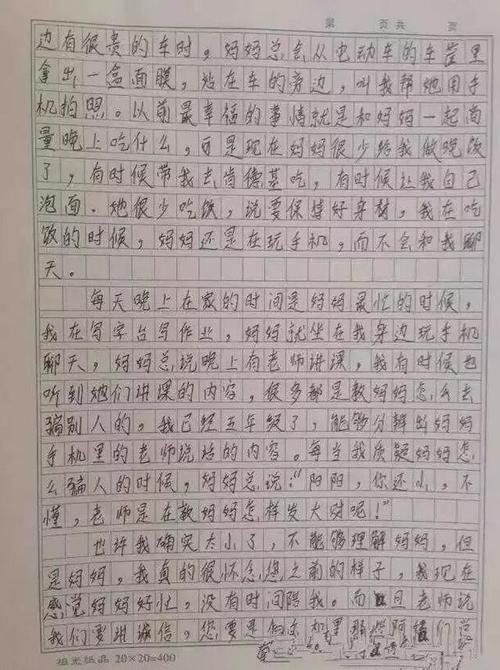 第 页共 页
边有很贵的车时，妈妈总会从电动车的车筐里
拿出一盒面膜，站在车的旁边，叫我帮她用手
机拍照。以前最幸福的事情就是和妈妈一起商
量晚上吃什么，可是现在妈妈很少给我做晚饭
了，有时候带我去肯德基吃，有时候让我自己
泡面。她很少吃饭，说要保持好身材，我在吃
饭的时候，妈妈还是在玩手机，而不会和我聊
天。
每天晚上在家的时间是妈妈最忙的时候，
我在写字台写作业，妈妈就坐在我身边玩手机
聊天，妈妈总说晚上有老师讲课，我有时候也
听到她们讲课的内容，很多都是教妈妈怎么去
骗别人的。我已经五年级了，能够分辨出妈妈
手机里的老师说话的内容。每当我质疑妈妈怎
么骗人的时候，妈妈总说：“阳阳，你还小，不
懂，老师是在教妈妈怎样发大财呢！”
也许我确实太小了，不能够理解妈妈，但
是妈妈，我真的很怀念您之前的样子，我现在
感觉妈妈好忙，没有时间陪我。而且老师说
我们要讲诚信，您要是
祖光纸品 20×20=400